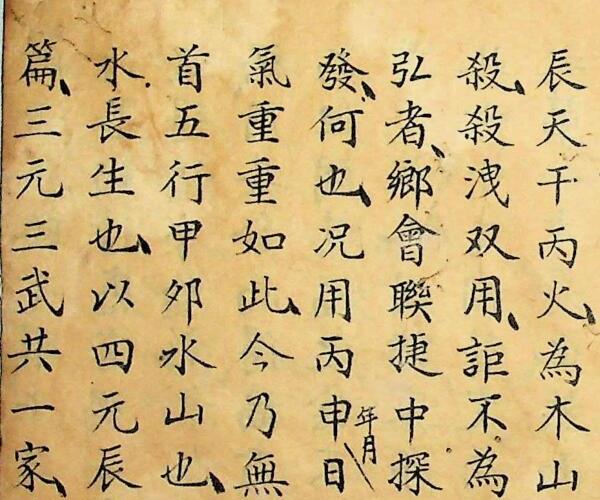 辰天干丙火、為木山
殺、殺洩双用、詎不為
弘者、鄉會聯捷中探
發、何也、况用丙申年月日
氣重重如此、今乃無
首五行甲夘水山也、
水長生也、以四元辰
篇、三元三武共一家、